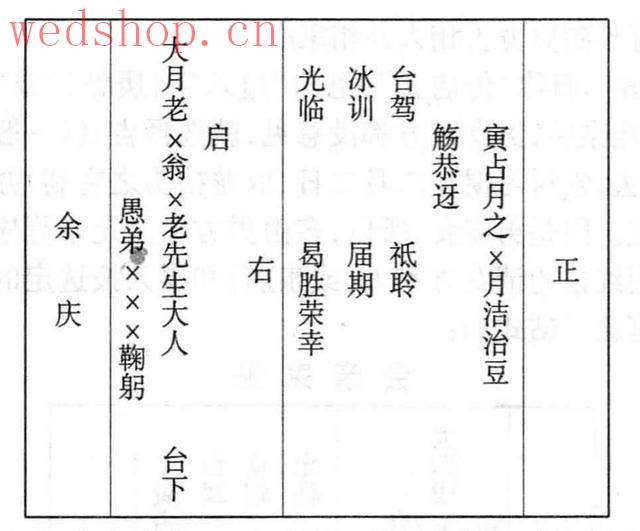 wedshop.cn
正
寅占月之×月洁治豆
觞恭迓
台驾 祗聆
冰训 届期
光临 曷胜荣幸
右
启
大月老×翁×老先生大人 台下
愚弟×××鞠躬
余庆